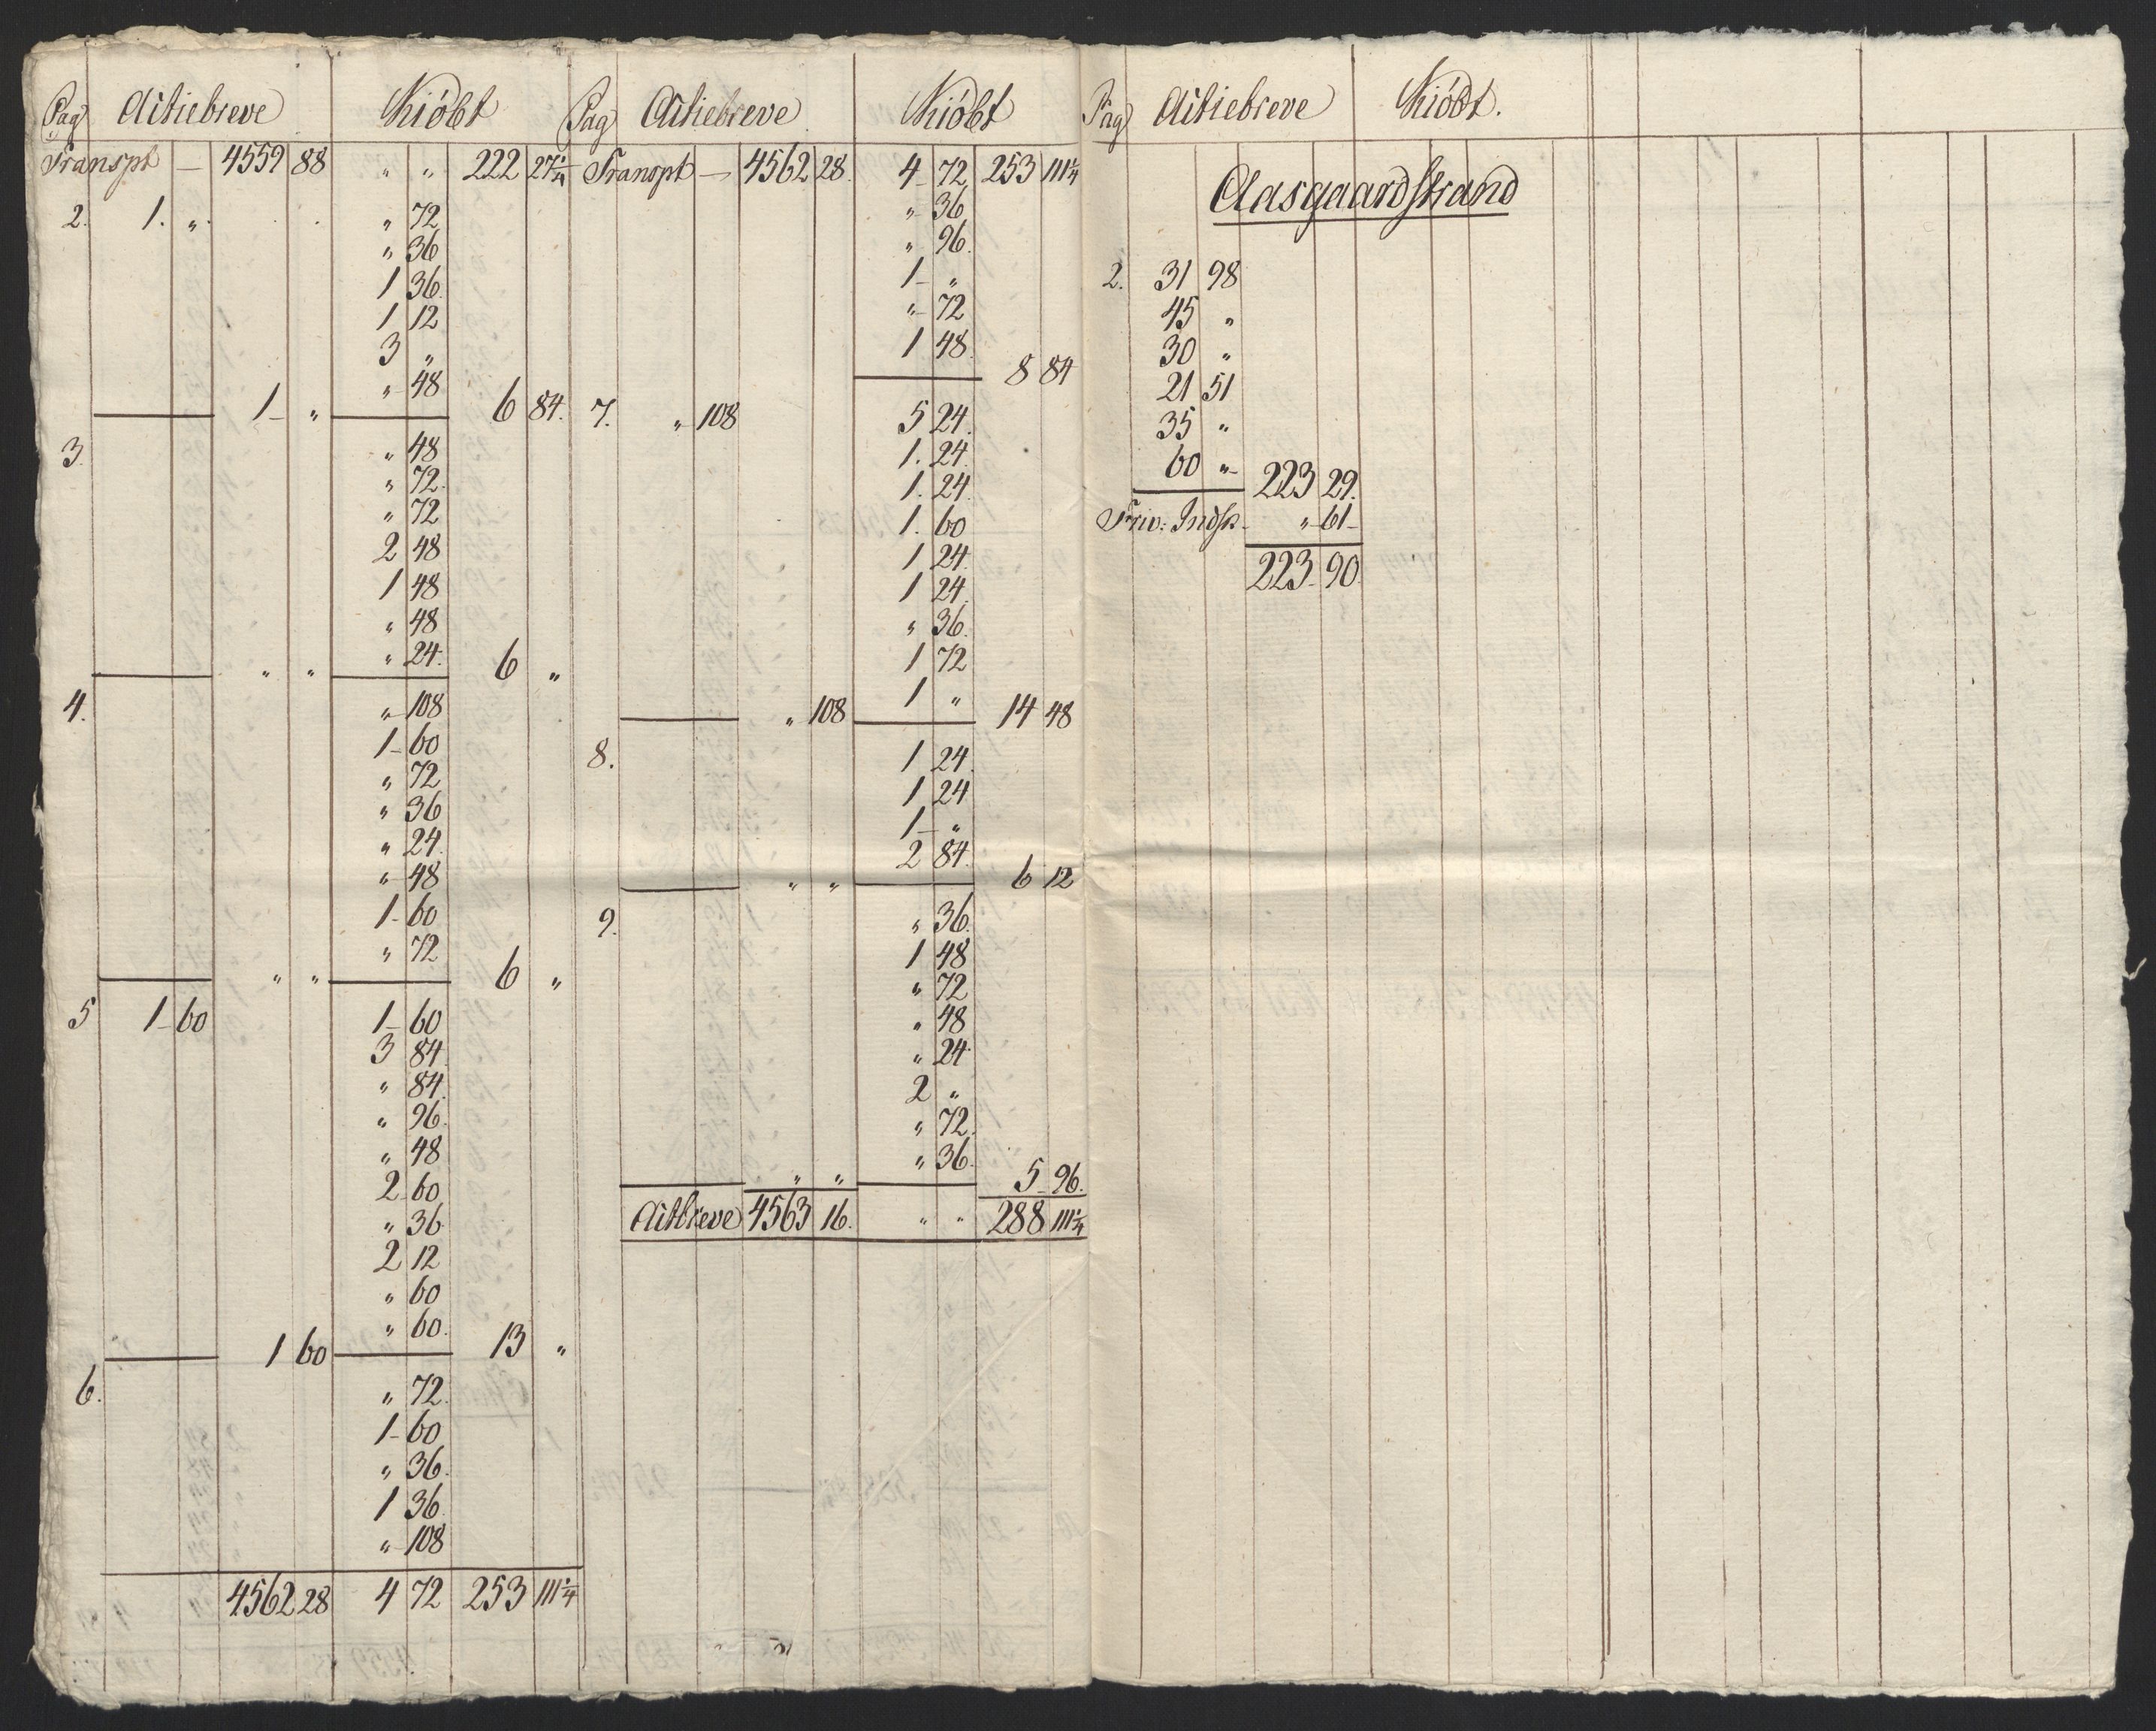 Pag Actiebreve Kiöbt
Transpt — 4559 88 " " 222 27 1/4
2. 1. " " 72
" 36
1 36
1 12
3 "
" 48
1 " 6 84
3. " 48
" 72
" 72
2 48
1 48
" 48
" 24
" " 6 "
4. " 108
1 60
" 72
" 36
" 24
" 48
1 60
" 72
" " 6 "
5 1 60 1 60
3 84
" 84
" 96
" 48
2 60
" 36
2 12
" 60
" 60
1 60 13 "
6. " 72
1 60
" 36
1 36
" 108
4562 28 4 72 253 111 1/4
Pag Actiebreve Kiöbt
Transpt — 4562 28. 4 72 253 111 1/4
" 36
" 96
1 "
" 72
1 48
8 84
7. " 108 5 24
1. 24
1. 24
1. 60
1 24
1 24
" 36
1 72
1 "
" 108 14 48
8. 1 24
1 24
1 "
2 84
" " 6 12
9. " 36
1 48
" 72
" 48
" 24
2 "
" 72
" 36
" " 5 96
Actbreve 4563 16. " " 288 111 1/4
Pag Actiebreve Kiöbt.
Aasgaardstrand
2. 31 98
45 "
30 "
21 51
35 "
60 " 223 29.
Friv: Indsk. " 61
223 90